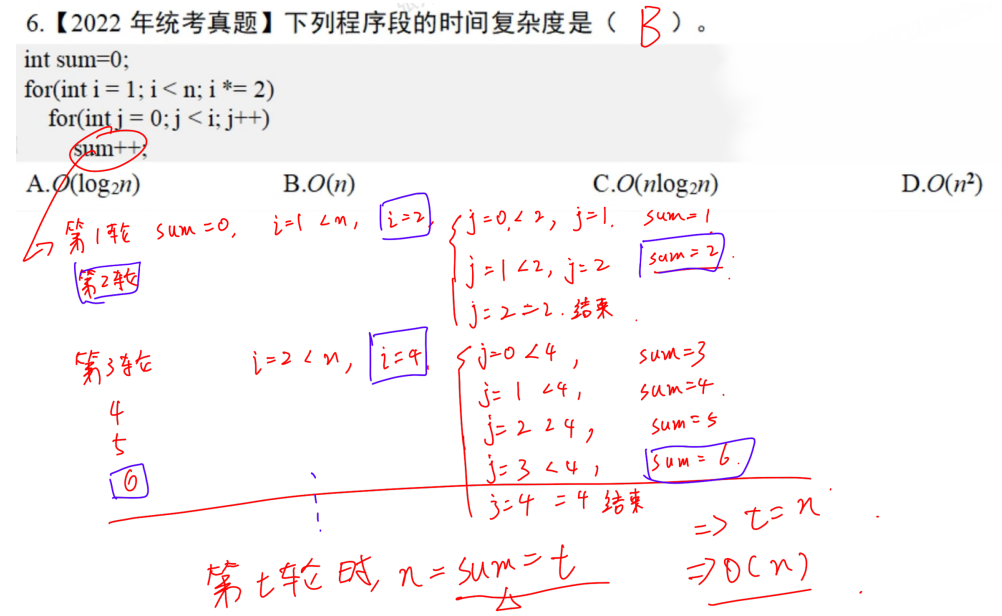 6.【2022 年统考真题】下列程序段的时间复杂度是（ B ）。
int sum=0;
for(int i = 1; i < n; i *= 2)
for(int j = 0; j < i; j++)
sum++;
A.O(log₂n) B.O(n) C.O(nlog₂n) D.O(n²)
第1轮 sum=0, i=1<n, i=2 j=0<2, j=1. sum=1
第2轮 j=1<2, j=2 sum=2
j=2=2.结束
第3轮 i=2<n, i=4 j=0<4, sum=3
4 j=1<4, sum=4
5 j=2<4, sum=5
6 j=3<4, sum=6
j=4=4 结束
=> t=n
第t轮时, n=sum=t => O(n)